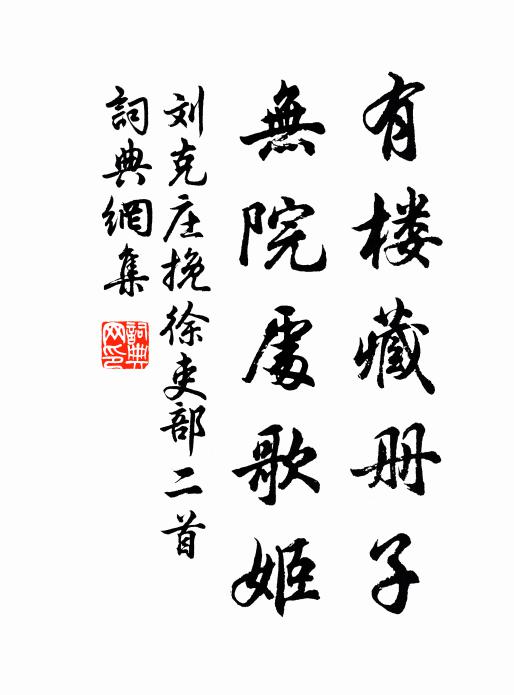 有楼藏册子
無院處歌姬
刘克庄挽徐吏部二首
詞典網集
詞典网印